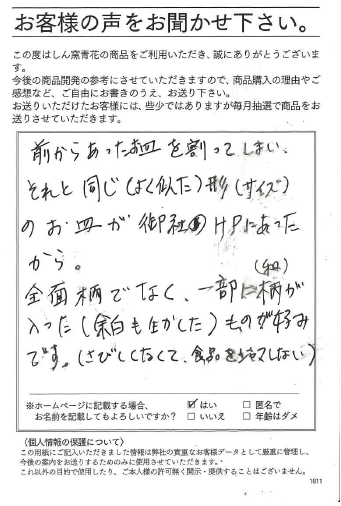 お客様の声をお聞かせ下さい。
この度はしん窯青花の商品をご利用いただき、誠にありがとうございま
す。
今後の商品開発の参考にさせていただきますので、商品購入の理由やご
感想など、ご自由にお書きのうえ、お送り下さい。
お送りいただけたお客様には、些少ではありますが毎月抽選で商品をお
送りさせていただきます。
前からあったお皿を割ってしまい、
それと同じ(よく似た)形(サイズ)
のお皿が御社のHPにあった
から。
全面柄でなく、一部に柄(和)が
入った(余白も生かした)ものが好み
です。(さびしくなくて、食品をジャマしない)
※ホームページに記載する場合、 ☑ はい □ 匿名で
お名前を記載してもよろしいですか? □ いいえ □ 年齢はダメ
〈個人情報の保護について〉
この用紙にご記入いただきました情報は弊社の貴重なお客様データとして厳重に管理し、
今後の案内をお送りするためのみに使用させていただきます。
これ以外の目的で使用したり、ご本人様の許可無く開示・提供することはございません。
1811